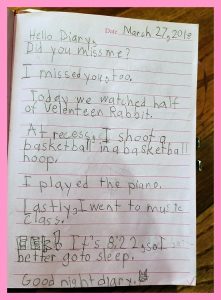 Date March 27, 2019
Hello Diary,
Did you miss me?
I missed you, too.
Today we watched half
of Velenteen Rabbit.
At recess, I shoot a
basketball in a basketball
hoop.
I played the piano.
Lastly, I went to music
class.
It's 8:22, so I
better go to sleep.
Good night diary.